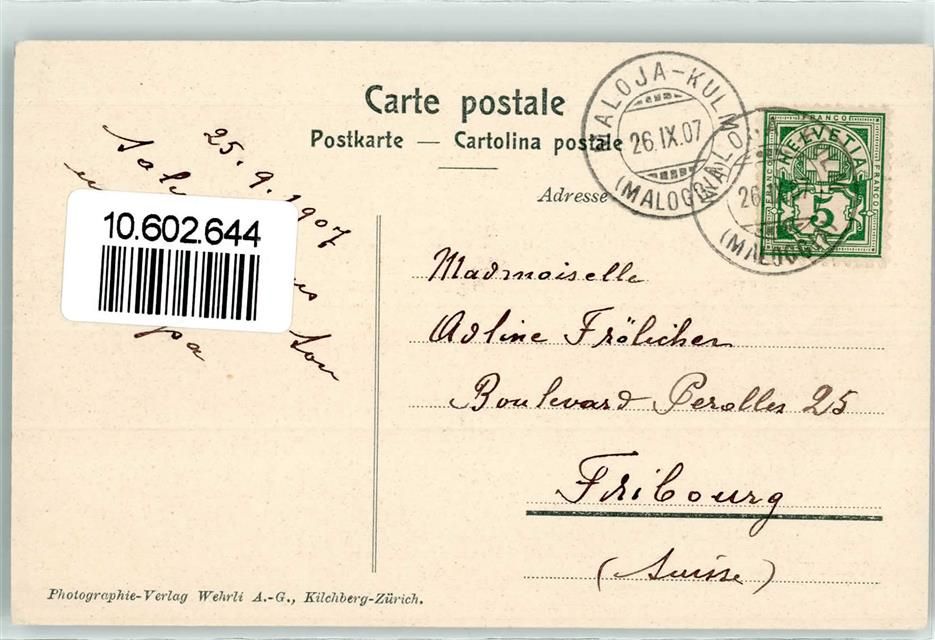 Carte postale
Postkarte — Cartolina postale
Adresse
MALOJA-KULM
26.IX.07
(MALOGGIA)
MALOJA
26.IX
(MALOGGIA)
FRANCO
HELVETIA
FRANCO
FRANCO
5
25. 9. 1907
10.602.644
son
papa
Madmoiselle
Adline Frölicher
Boulevard Perolles 25
Fribourg
(Suisse)
Photographie-Verlag Wehrli A.-G., Kilchberg-Zürich.